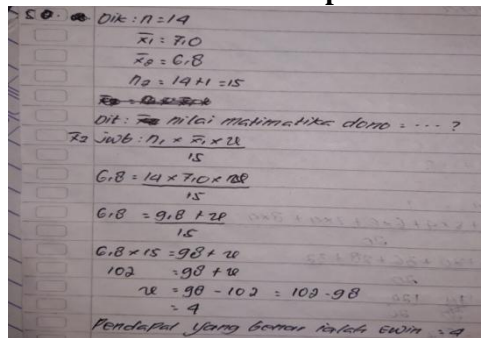 50. Dik : n = 14
x̄1 = 7,0
x̄2 = 6,8
n2 = 14+1 = 15
Dit : nilai matimatika dono = .... ?
x̄2 jwb : n1 × x̄1 × x
15
6,8 = 14 × 7,0 ×
15
6,8 = 9,8 + x
15
6,8 × 15 = 98 + x
102 = 98 + x
x = 98 - 102 = 102 - 98
= 4
Pendapat yang benar ialah Ewin = 4